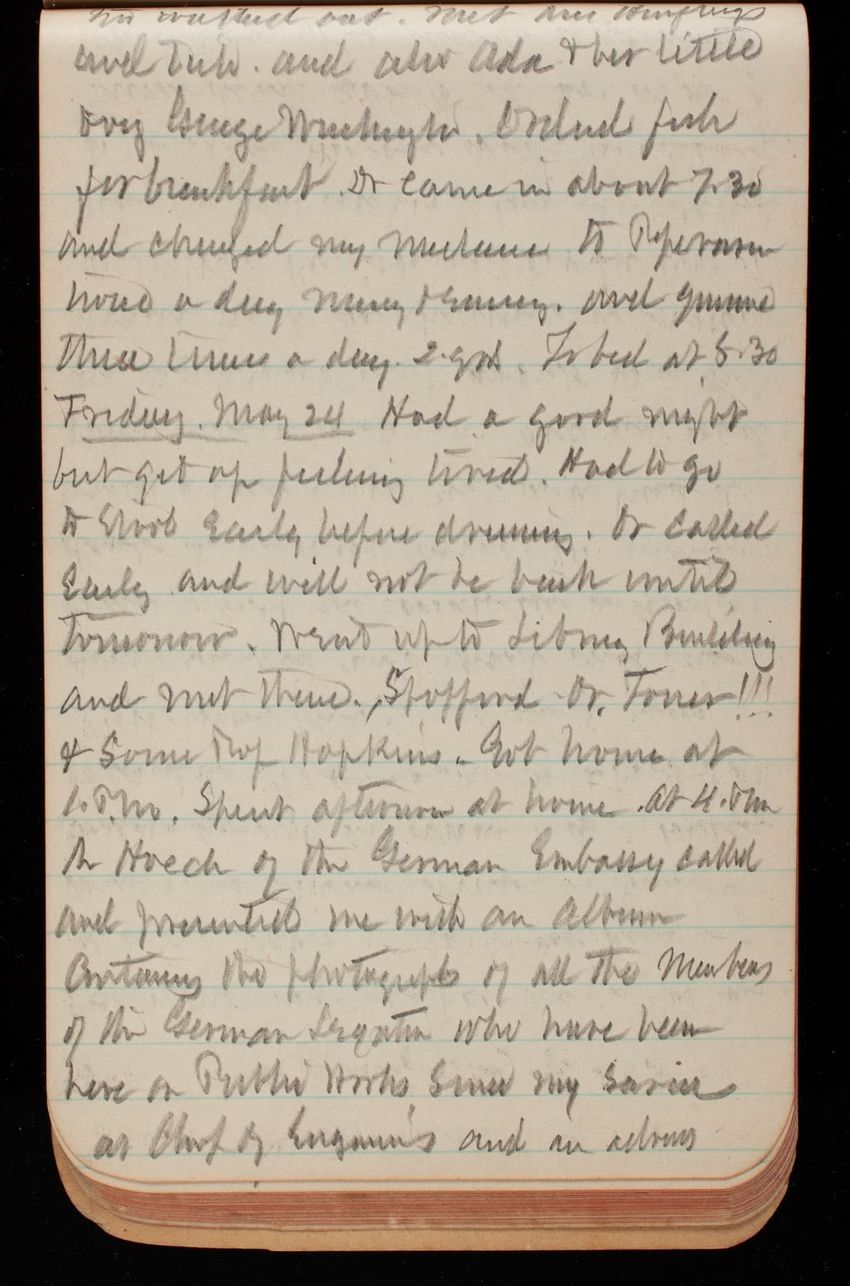 washed out. Met
and Tulu. and also Ada & her little
boy George Washington. Ordered fish
for breakfast. Dr came in about 7.30
and changed my medicine to Piperazin
twice a day morng & evening. and quinine
three times a day. 2 grs. To bed at 8.30
Friday. May 24 Had a good night
but got up feeling tired. Had to go
to Stool Early before dressing. Dr called
Early and will not be back until
tomorrow. Went up to Library Building
and met there. Spofford Dr. Toner!!!
& Some Prof Hopkins. Got home at
1. P.M. Spent afternoon at home. At 4. P.M
Mr Hoech of the German Embassy called
and presented me with an Album
Containing the photographs of all the Members
of the German Legation who have been
here on Public Works Since my Service
as Chief of Engineers and an address